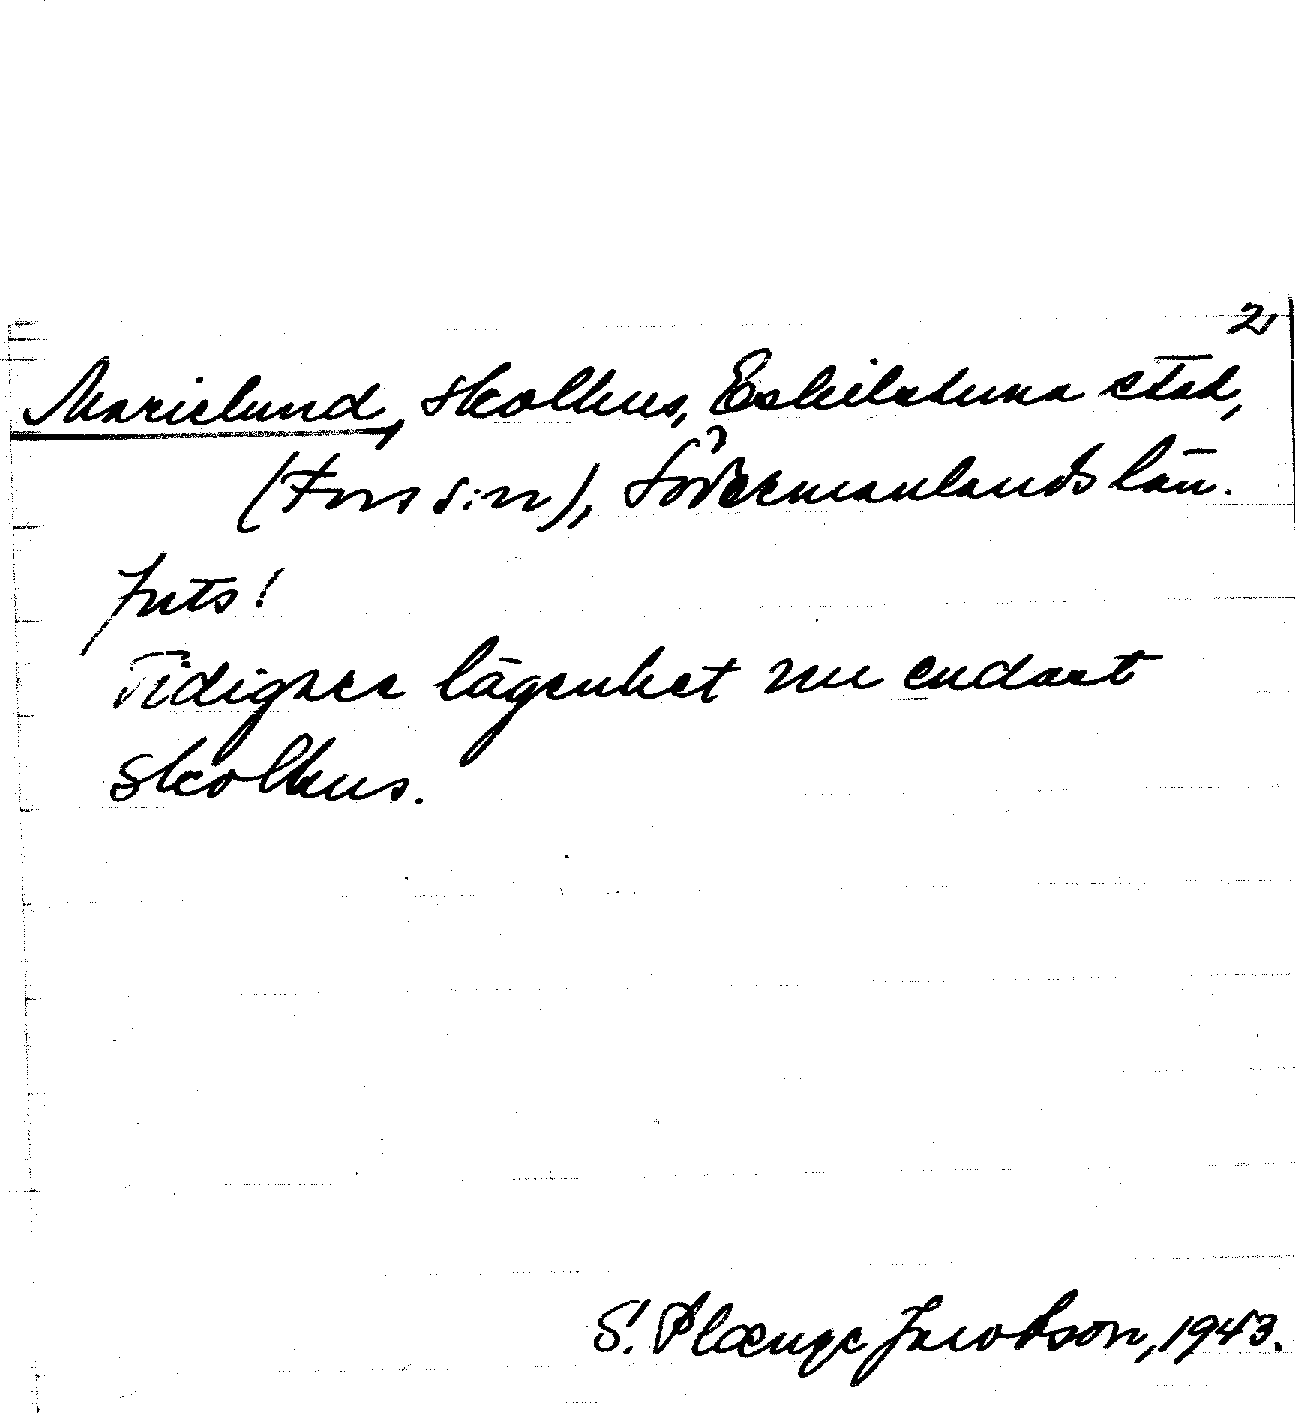 2,
Marielund, skolhus, Eskilstuna stad,
(Fors s:n), Södermanlands län.
Juts!
Tidigare lägenhet nu endast
skolhus.
S. Plænge Jacobson, 1943.